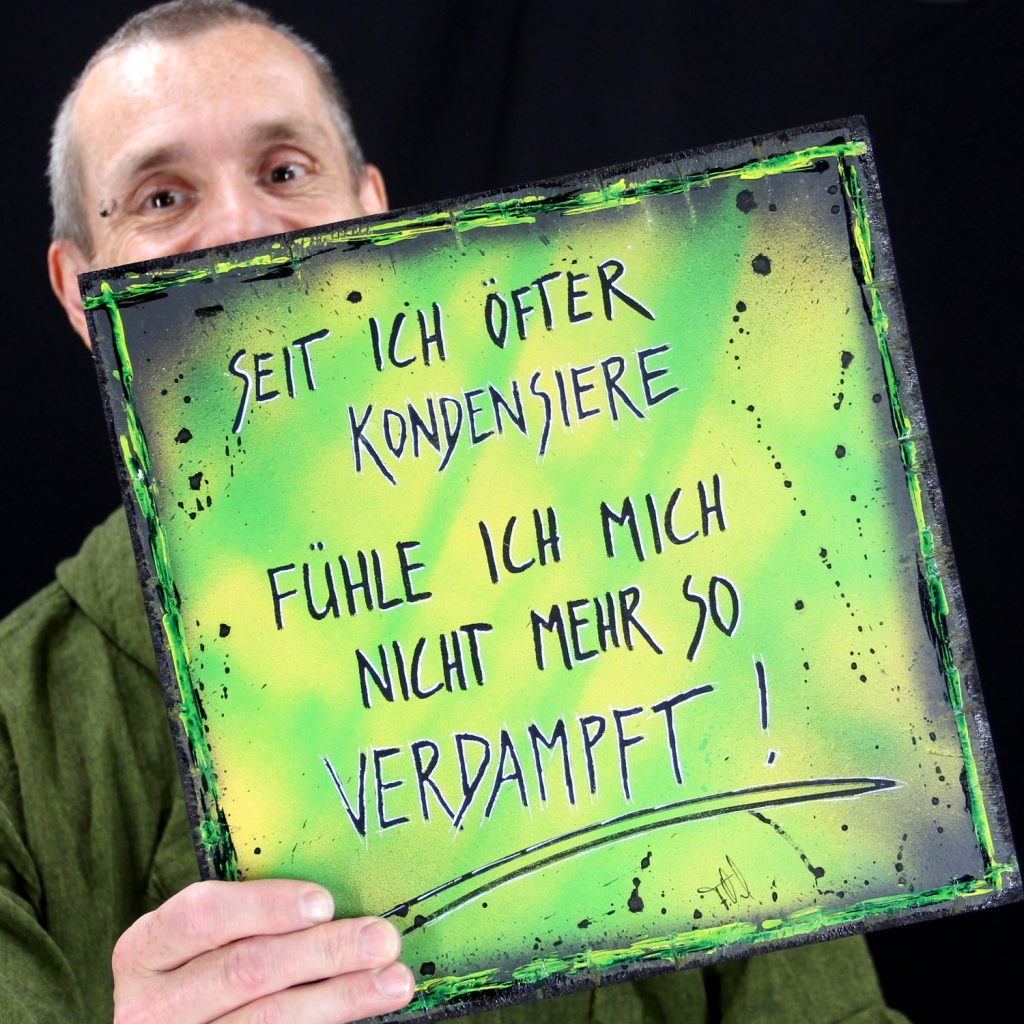 SEIT ICH ÖFTER
KONDENSIERE
FÜHLE ICH MICH
NICHT MEHR SO
VERDAMPFT !